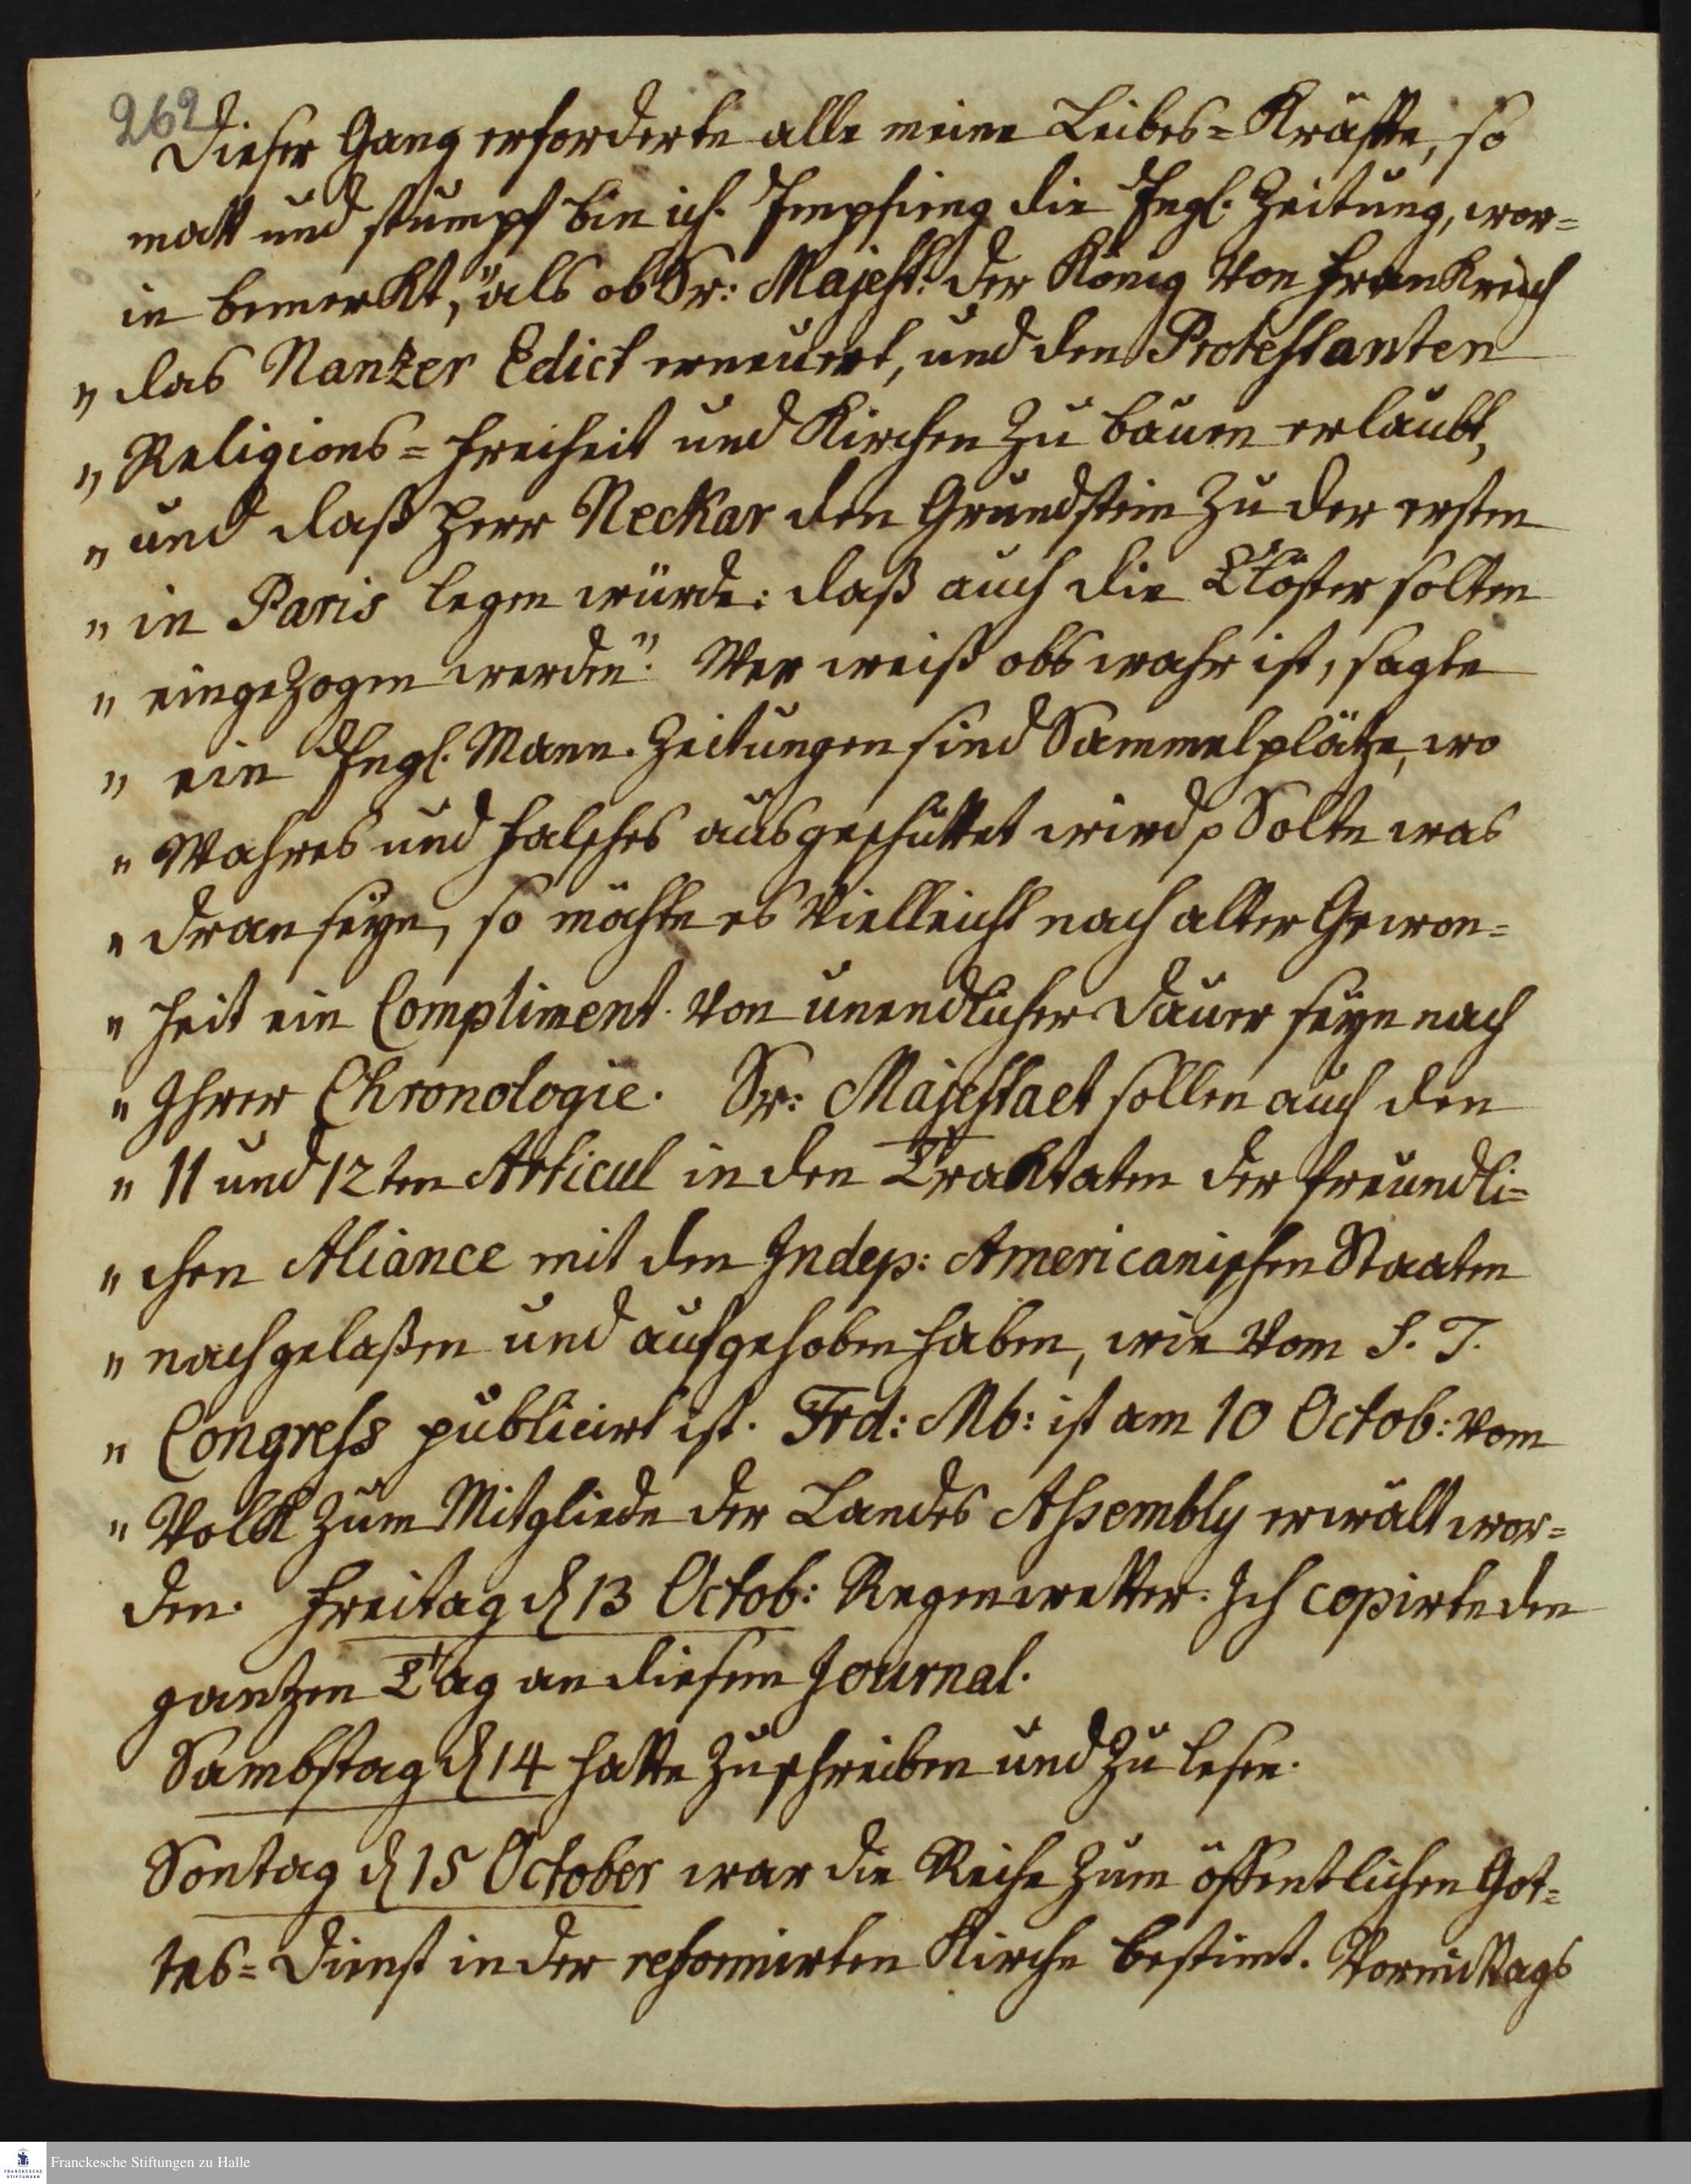 262
Dieser Gang erforderte alle meine Leibes=Kräfte, so
matt und stumpf bin ich. Empfieng die Engl. Zeitung, wor=
in bemerkt, "als ob Sr: Majest: der König von Frankreich
" das Nantzer Edict erneuert, und den Protestanten
" Religions=Freiheit und Kirchen zu bauen erlaubt,
" und daß Herr Neckar den Grundstein zu der ersten
" in Paris legen würde: daß auch die Clöster solten
" eingezogen werden". Wer weiß obs wahr ist, sagte
" ein Engl. Mann. Zeitungen sind Sammelplätze, wo
" Wahres und falsches ausgeschüttet wird p Solte was
" dran seyn, so möchte es vielleicht nach alter Gewon=
" heit ein Compliment von unendlicher Dauer seyn nach
" Ihrer Chronologie. Sr: Majestaet sollen auch den
" 11 und 12ten Articul in den Traktaten der freundli=
" chen Aliance mit den Indep: Americanischen Staaten
" nachgelaßen und aufgehoben haben, wie vom S. T.
" Congress publicirt ist. Frd: Mb: ist am 10 Octob: vom
" Volk zum Mitgliede der Landes Assembly erwält wor=
den. Freitag d 13 Octob: Regenwetter. Ich copirte den
gantzen Tag an diesem Journal.
Sambstag d 14 hatte zu schreiben und zu lesen.
Sontag d 15 October war die Reihe zum öffentlichen Got=
tes=Dienst in der reformirten Kirche bestimt. Vormittags
FRANCKESCHE STIFTUNGEN
Franckesche Stiftungen zu Halle